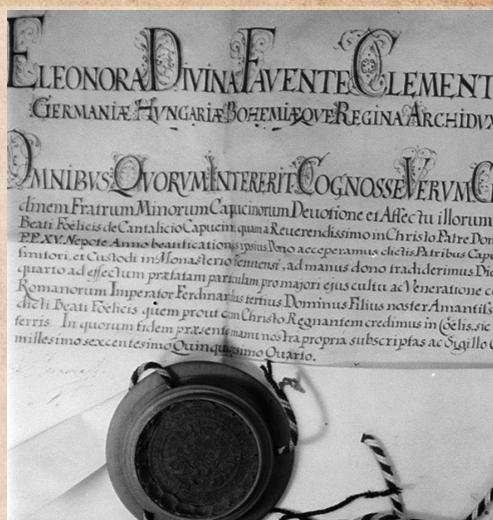 ELEONORA DIVINA FAVENTE CLEMENT
GERMANIÆ HVNGARIÆ BOHEMIÆQVE REGINA ARCHIDVX
OMNIBVS QVORVM INTERERIT COGNOSSE VERVM
dinem Fratrum Minorum Capucinorum Devotione et Affectu illorum
Beati Fœlicis de Cantalicio Capucini quam a Reuerendissimo in Christo Patre Don
P.P. XV. Nepote Anno beatificationis ipsius Dono acceperamus dictis Patribus Capu
finitori, et Custodi in Monasterio ad manus dono tradiderimus Die
quarto ad effectum præfatam particulam pro majori ejus cultu ac Veneratione
Romanorum Imperator Ferdinandus tertius Dominus Filius noster Amantiss
dicti Beati Fœlicis quem prout cum Christo Regnantem credimus in Cœlis, sic
ferris. In quorum fidem præsentes manu nostra propria subscriptas ac Sigillo
millesimo sexcentesimo Quinquagesimo Quarto.